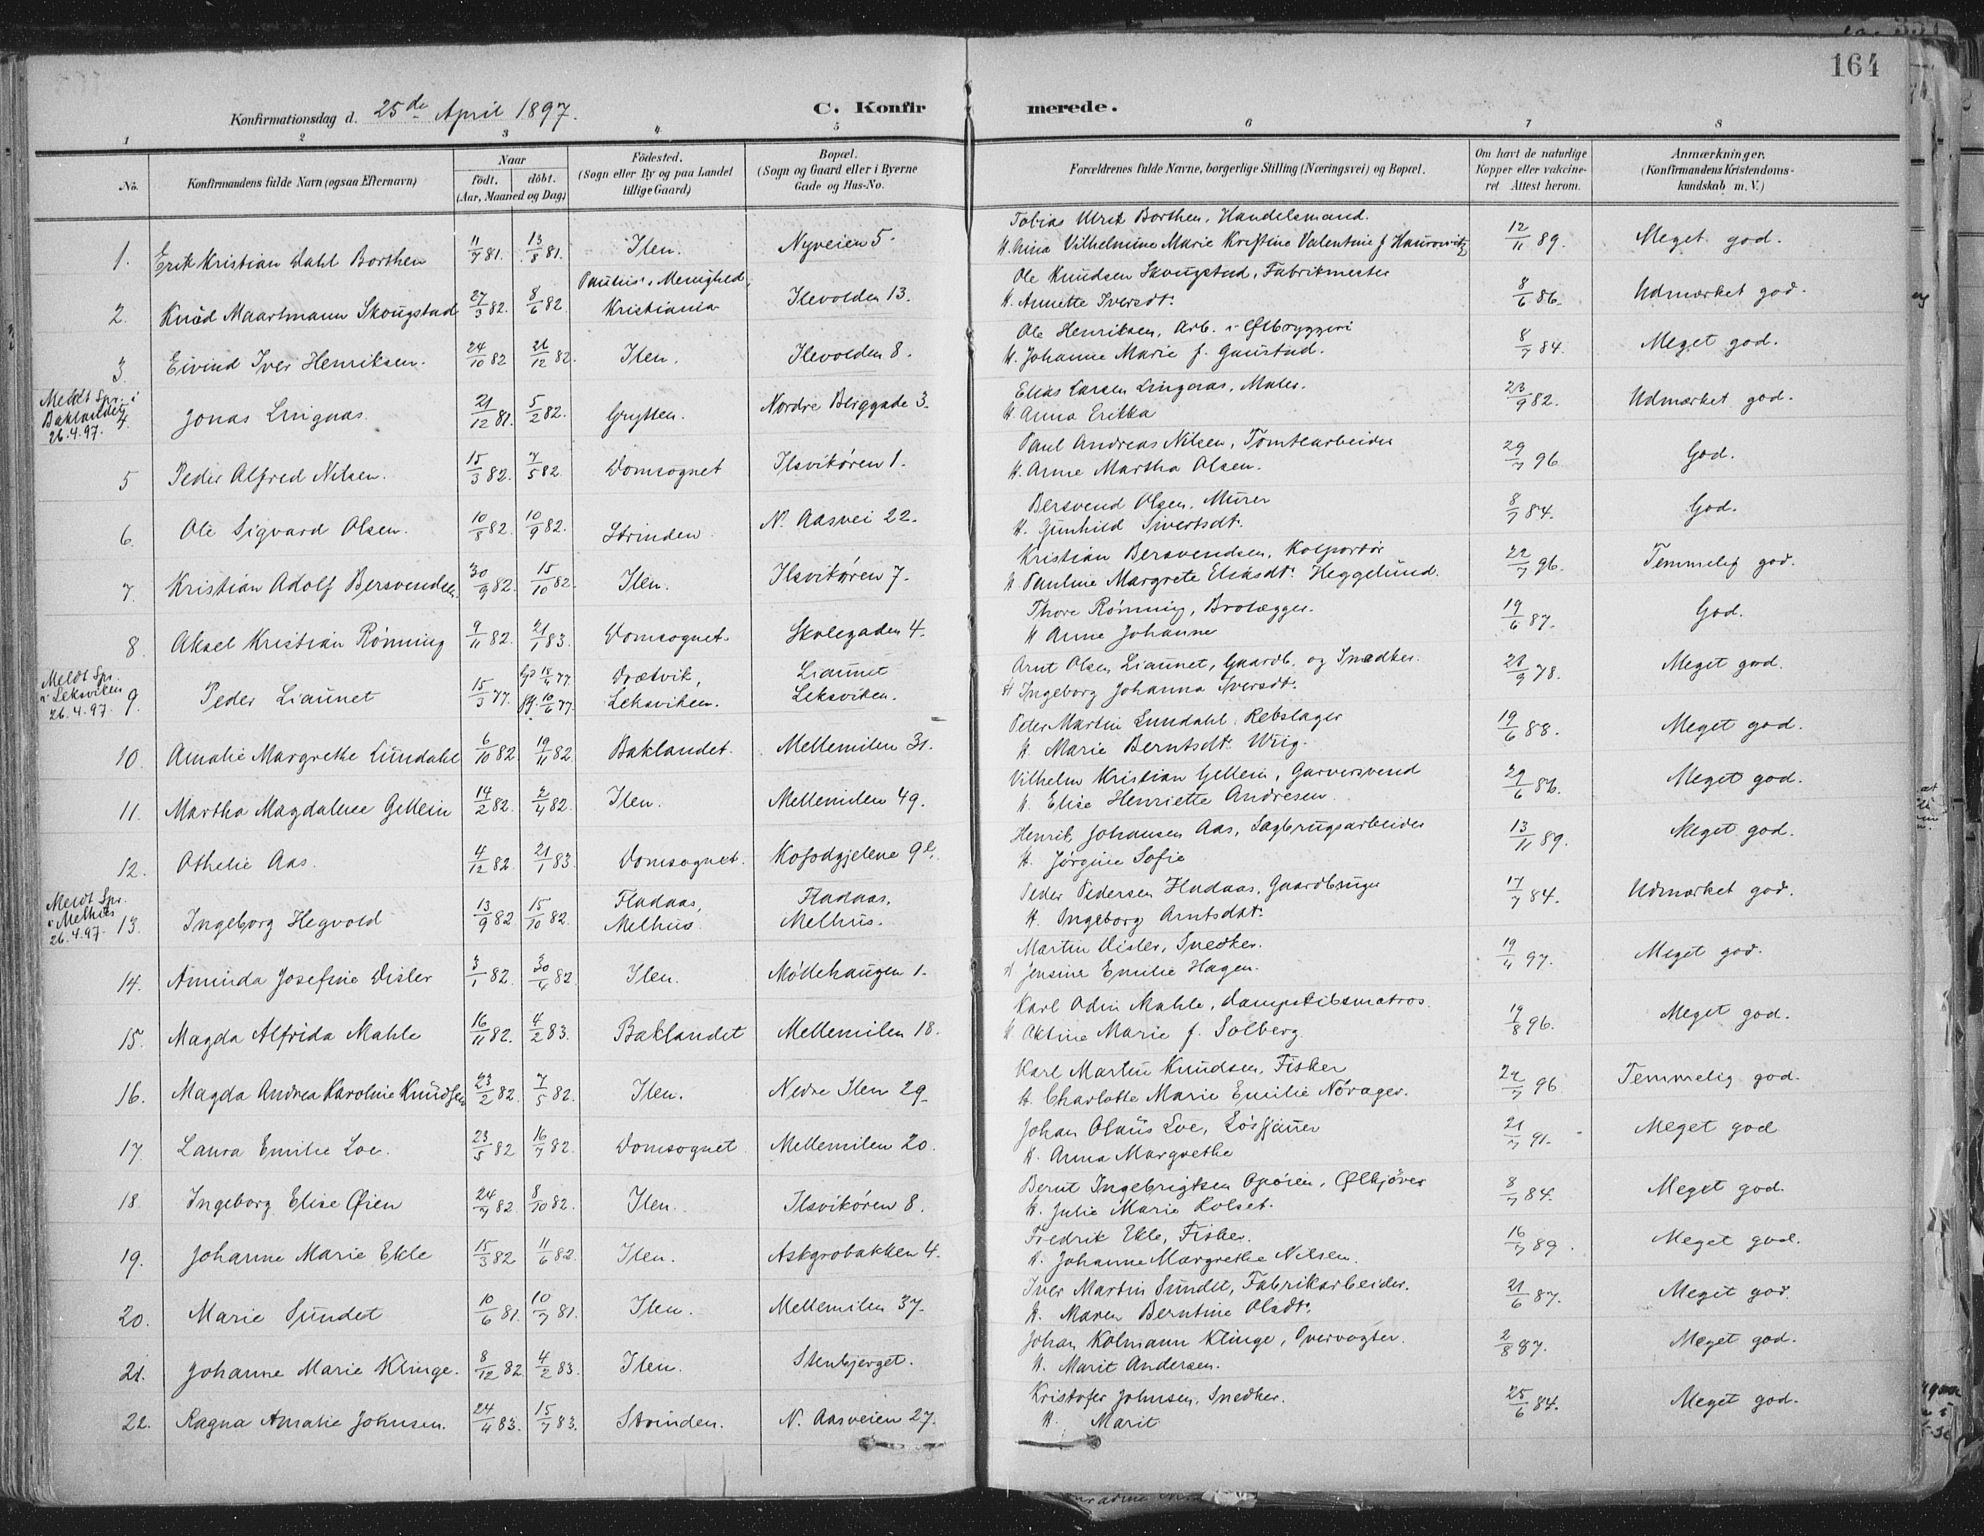 164
Konfirmationsdag d. 25de April 1897.
C. Konfirmerede.
1 2 3 4 5 6 7 8
No.
Konfirmandens fulde Navn (ogsaa Efternavn)
Naar
födt. döbt.
(Aar, Maaned og Dag)
Födested.
(Sogn eller By og paa Landet
tillige Gaard)
Bopæl.
(Sogn og Gaard eller i Byerne
Gade og Hus-No.
Forældrenes fulde Navne, borgerlige Stilling (Næringsvei) og Bopæl.
Om havt de naturlige
Kopper eller vakcine-
ret Attest herom.
Anmærkninger.
(Konfirmandens Kristendoms-
kundskab m. V.)
1. Erik Kristian Dahl Borthen 11/7 81. 13/8 81. Ilen. Nyveien 5. Tobias Ulrik Borthen, Handelsmand. 12/11 89. Meget god.
H. Anna Vilhelmine Marie Kristine Valentine f. Haurowitz
2. Knud Maartmann Skougstad 27/3 82. 8/6 82 Paulus Menighed, Kristiania Ilevolden 13. Ole Knudsen Skougstad, Fabrikmester 8/6 86. Udmærket god.
H. Annette Iversdt.
3 Eivind Iver Henriksen. 24/10 82 26/12 82. Ilen. Ilevolden 8. Ole Henriksen, Arb. i Ølbryggeri 8/7 84. Meget god.
H. Johanne Marie f. Gaustad.
Meldt Spr. i
Baklandet
26.4.97.
4. Jonas Lingaas. 21/12 81. 5/2 82. Grytten. Nordre Berggade 3. Elias Larsen Lingaas, Maler. 23/9 82. Udmærket god.
H. Anna Erikka
5 Peder Alfred Nilsen. 15/3 82. 7/5 82. Domsognet Ilsvikøren 1. Paul Andreas Nilsen, Tomtearbeider 29/7 96 God.
H. Anne Martha Olsen.
6. Ole Sigvard Olsen. 10/8 82. 10/9 82. Strinden N. Aasvei 22. Bersvend Olsen, Murer 8/7 84. God.
H. Gunhild Sivertsdt.
7. Kristian Adolf Bersvendsen. 30/9 82. 15/10 82. Ilen. Ilsvikøren 7. Kristian Bersvendsen, Kolportør 22/7 96. Temmelig god.
H. Pauline Margrete Eliasdt. Heggelund.
8. Aksel Kristian Rönning 9/11 82. 21/1 83. Domsognet. Skolegaden 4. Thore Rönning, Brolægger. 19/6 87. God.
H Anne Johanne
Meldt Spr.
i Leksviken
26.4.97.
9. Peder Liaunet 15/3 77. 18/4 77 10/6 77 Drætvik, Leksviken. Liaunet Leksviken. Arnt Olsen Liaunet, Gaardb. og Snedker. 28/9 78. Meget god.
H Ingeborg Johanna Iversdt.
10. Amalie Margrethe Lundahl 6/10 82 19/11 82. Baklandet. Mellemilen 31. Peter Martin Lundahl, Rebslager 19/6 88. Meget god.
H. Marie Berntsdt. Wiig.
11. Martha Magdalene Gellein 14/2 82. 2/4 82. Ilen. Mellemilen 49. Vilhelm Kristian Gellein, Garversvend 29/6 86. Meget god.
H. Elise Henriette Andresen
12. Othelie Aas. 4/12 82 21/1 83. Domsognet. 9 Henrik Johansen Aas, Sagbrugsarbeider 13/11 89. Meget god.
H. Jørgine Sofie
Meldt Spr.
i Melhus
26.4.97.
13. Ingeborg Hegvold 13/9 82 15/10 82. Fladaas, Melhus. Fladaas, Melhus. Peder Pedersen Fladaas, Gaardbruger 17/7 84. Udmærket god.
H. Ingeborg Arntsdt.
14. Aminda Josefine Disler 3/1 82. 30/4 82 Ilen. Möllehaugen 1. Martin Disler, Snedker. 19/4 97. Meget god.
H Jensine Emilie Hagen.
15. Magda Alfrida Mahle 16/11 82. 4/2 83. Baklandet Mellemilen 18. Karl Odin Mahle, Dampskibsmatros. 19/8 96. Meget god.
H Oktine Marie f. Solberg.
16. Magda Andrea Karoline Knudsen 23/2 82. 7/5 82. Ilen. Nedre Ilen 29. Karl Martin Knudsen, Fisker 22/7 96 Temmelig god.
H. Charlotte Marie Emilie Nörager.
17. Laura Emilie Loe. 23/5 82 16/7 82. Domsognet Mellemilen 20. Johan Olaus Loe, 21/7 91. Meget god
H. Anna Margrethe
18. Ingeborg Elise Øien 24/7 82. 8/10 82. Ilen. Ilsvikören 8. Bernt Ingebrigtsen Opöien, Ølkjörer 8/7 84. Meget god.
H. Julie Marie Rolset.
19. Johanne Marie Ekle 15/3 82 11/6 82. Ilen. Askgrobakken 4. Fredrik Ekle, Fisker. 16/7 89. Meget god.
H. Johanne Margrethe Nilsen.
20. Marie Sundet 10/6 81. 10/7 81. Ilen. Mellemilen 37. Iver Martin Sundet, Fabrikarbeider. 21/6 87. Meget god.
H. Maren Berntine Olsdt.
21. Johanne Marie Klinge. 8/12 82 4/2 83. Ilen. Stenbjerget. Johan Kolmann Klinge, Overvogter. 2/8 87. Meget god.
H. Marit Andersen.
22. Ragna Amalie Johnsen. 24/4 83. 15/7 83. Strinden. N. Aasveien 27. Kristofer Johnsen, Snedker. 25/6 84. Meget god.
H. Marit